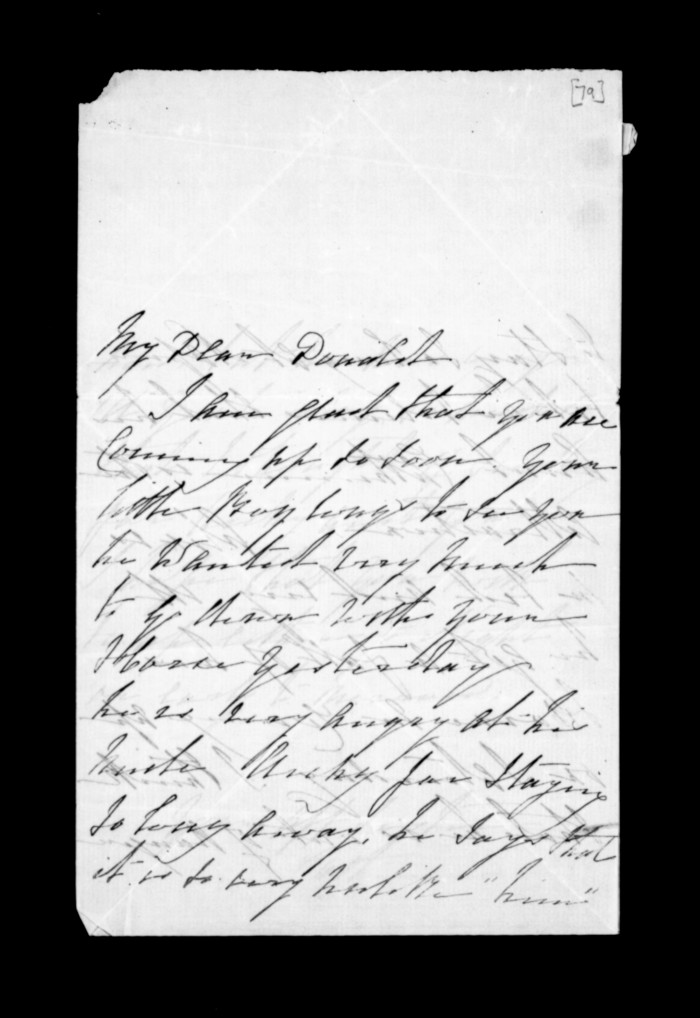 [79]
My Dear Donald
I am glad that you are
Coming up so soon. your
little Boy longs to see you
he wanted very much
to go down with your
Horse yesterday
he is very angry at his
Uncle Archy for Staying
so long away, he says that
it is so very unlike "him"